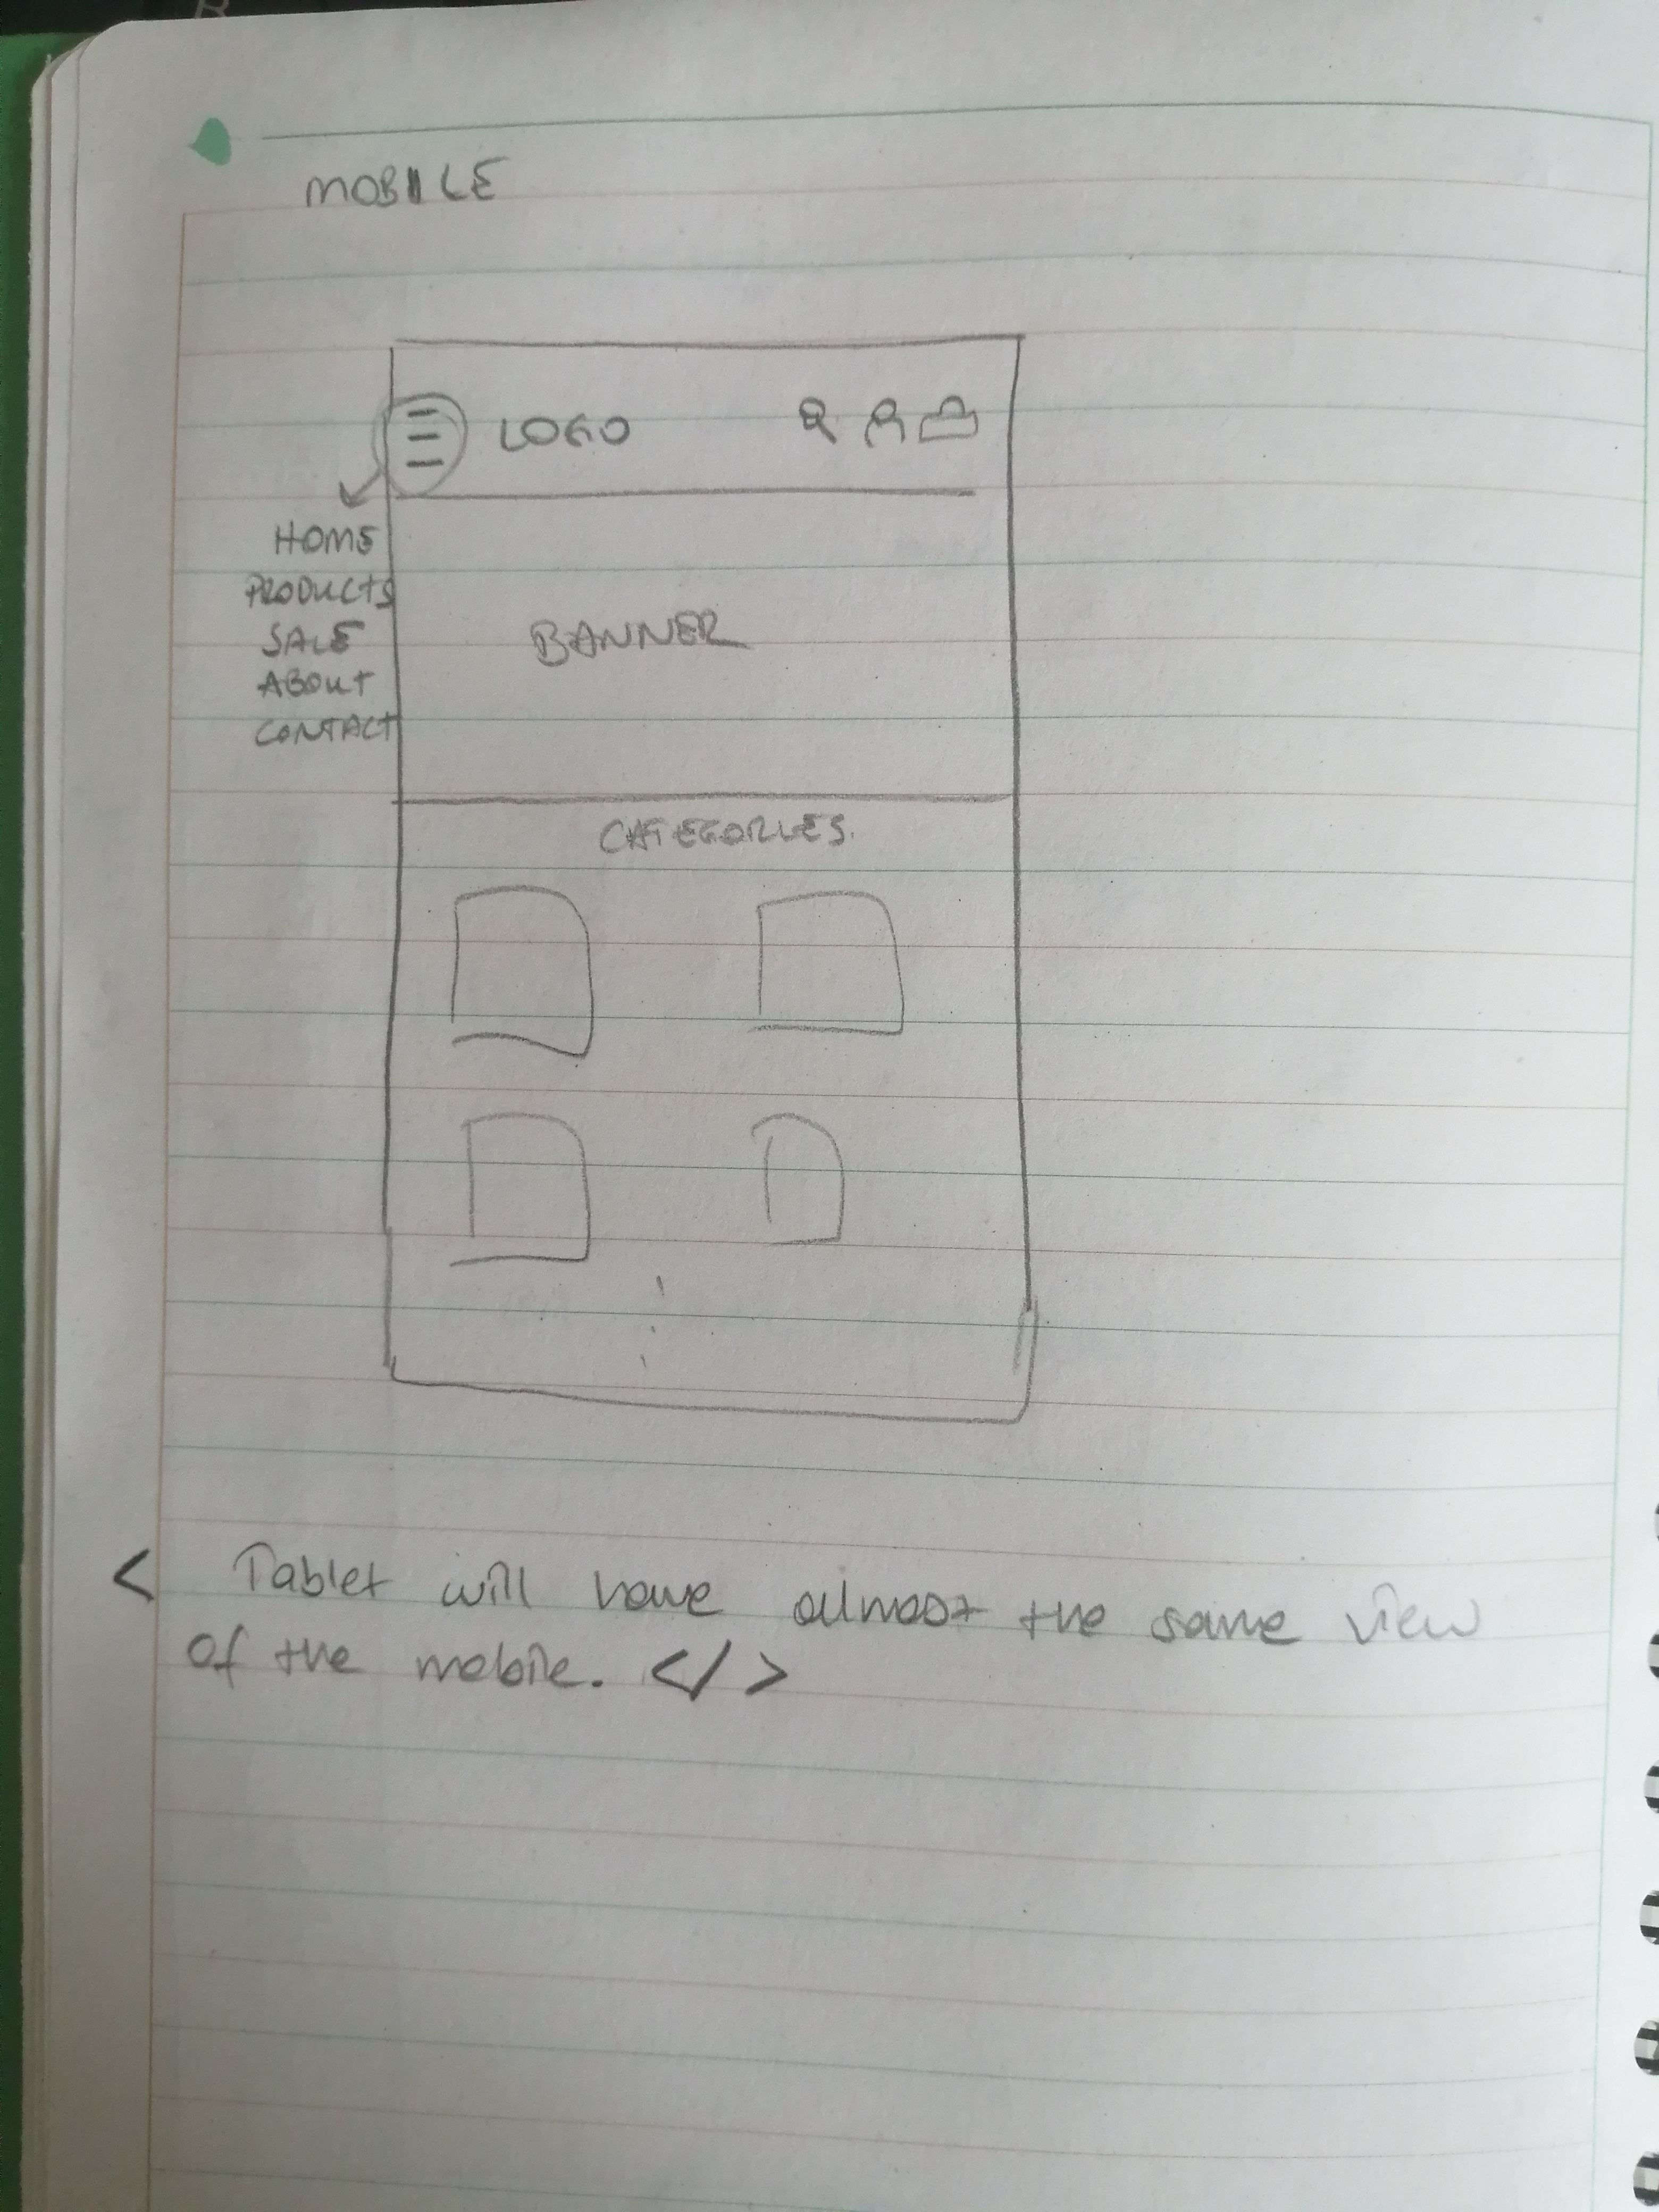 MOBILE
LOGO
HOME
PRODUCTS
SALE
ABOUT
CONTACT
BANNER
CATEGORIES.
< Tablet will have almost the same view
of the mobile. </>